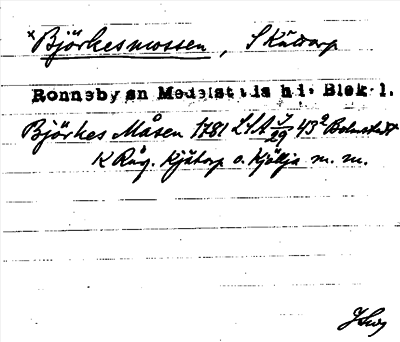 *Björkesmossen, S Kättorp
Ronneby sn Medelstads hd. Blek. l.
Björkes Måsen 1781 LSA J/29 43² Bolmstedt
K Råg. Kjätorp o. Kjölja m. m.